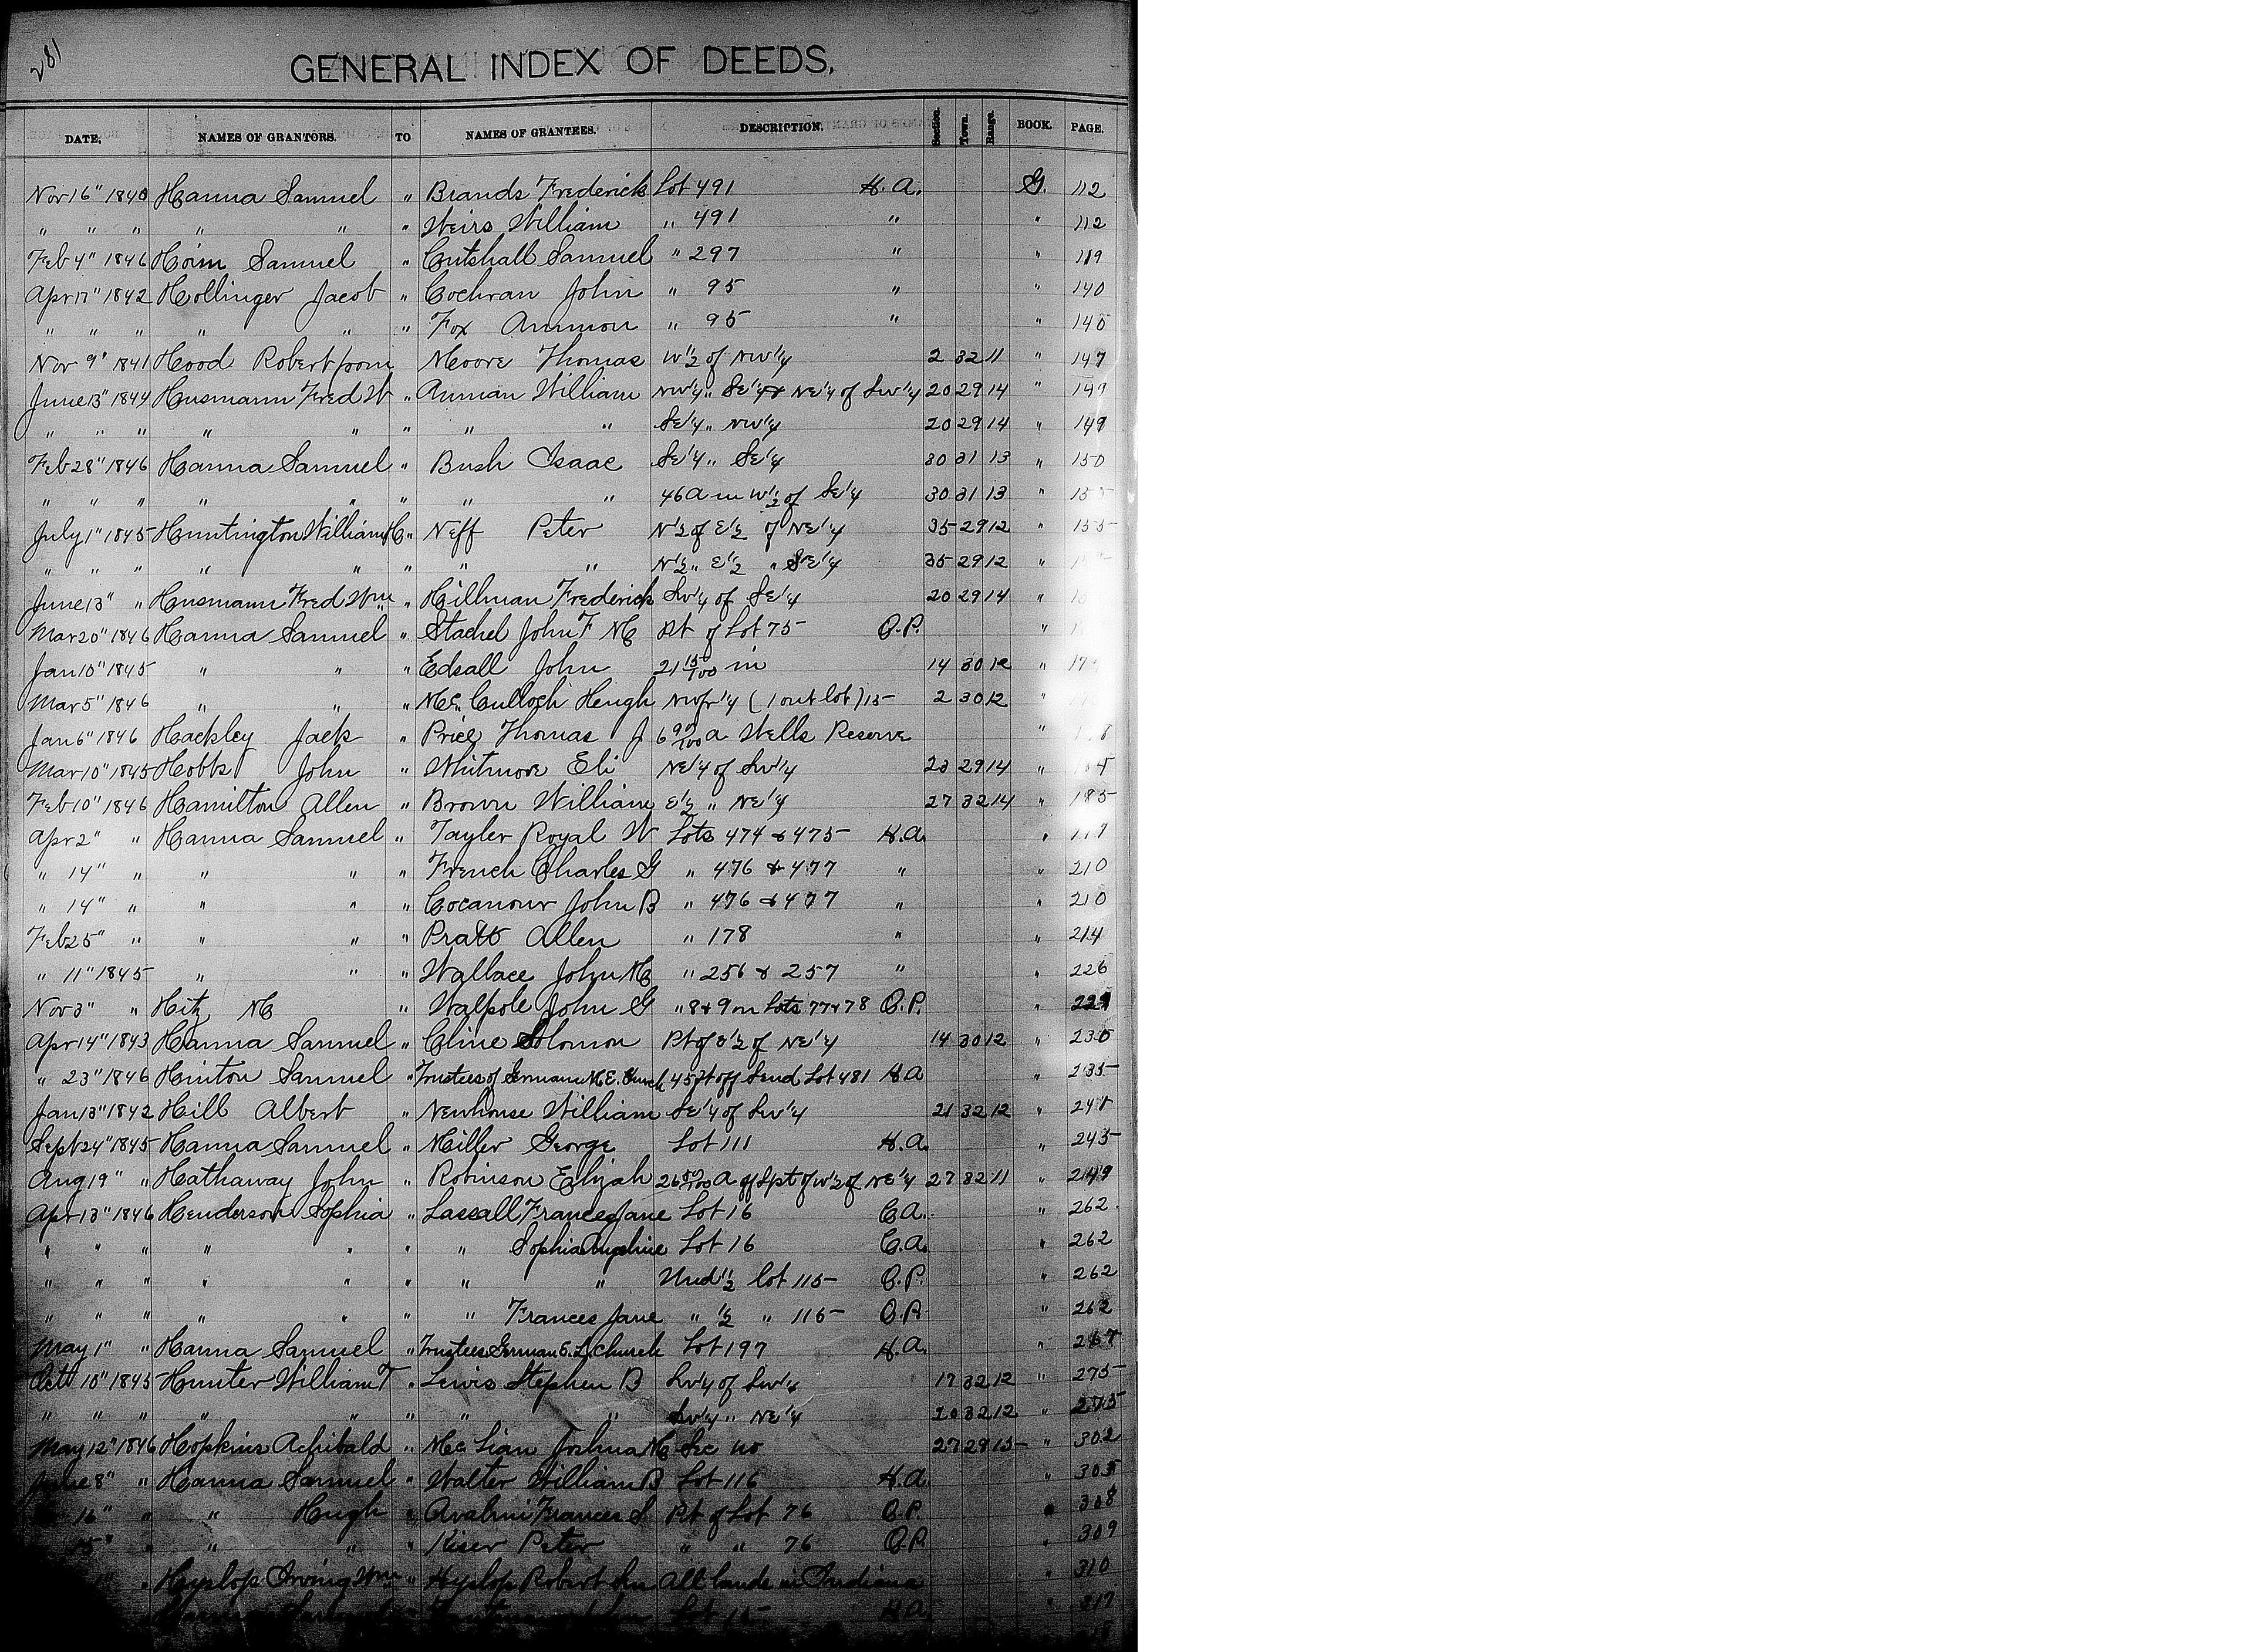 281
GENERAL INDEX OF DEEDS.
DATE. NAMES OF GRANTORS. TO NAMES OF GRANTEES. DESCRIPTION. Section. Town. Range. BOOK. PAGE.
Nov 16" 1840 Hanna Samuel " Brands Frederick Lot 491 H.A. G. 112
" " " " " " Weirs William " 491 " " 112
Feb 4" 1846 Samuel " Cutshall Samuel " 297 " " 119
Apr 17" 1842 Hollinger Jacob " Cochran John " 95 " " 140
" " " " " " Fox Ammon " 95 " " 140
Nov 9" 1841 Hood Robert from Moore Thomas W 1/2 of NW 1/4 2 32 11 " 147
June 13" 1844 Husmann Fred W " Auman William NW 1/4 " SE 1/4 & NE 1/4 of SW 1/4 20 29 14 " 149
" " " " " " " " SE 1/4 " NW 1/4 20 29 14 " 149
Feb 28" 1846 Hanna Samuel " Bush Isaac SE 1/4 " SE 1/4 30 31 13 " 150
" " " " " " " " 46 A in W 1/2 of SE 1/4 30 31 13 "
July 1" 1845 Huntington William H " Neff Peter N 1/2 of E 1/2 of NE 1/4 35 29 12 " 155
" " " " " " " " N 1/2 " E 1/2 " SE 1/4 35 29 12 "
June 13" " Husmann Fred Wm " Hillman Frederick SW 1/4 of SE 1/4 20 29 14 "
Mar 20" 1846 Hanna Samuel " Stachel John F M Pt of Lot 75 O.P. "
Jan 10" 1845 " " " Edsall John 21 15/100 in 14 30 12 "
Mar 5" 1846 " " " Mc Culloch Hugh NW fr 1/4 (1 out lot) 15 2 30 12 "
Jan 6" 1846 Hackley Jack " Price Thomas J 6 90/100 a Wells Reserve "
Mar 10" 1845 Hobbs John " Whitmore Eli NE 1/4 of SW 1/4 23 29 14 "
Feb 10" 1846 Hamilton Allen " Brown William E 1/2 " NE 1/4 27 32 14 " 185
Apr 2" " Hanna Samuel " Tayler Royal W Lots 474 & 475 H.A. "
" 14" " " " " French Charles G " 476 & 477 " " 210
" 14" " " " " Cocanour John B " 476 & 477 " " 210
Feb 25" " " " " Pratt Allen " 178 " " 214
" 11" 1845 " " " Wallace John M " 256 & 257 " " 226
Nov 3" " Hitz M " Walpole John G " 8 & 9 on Lots 77 & 78 O.P. " 229
Apr 14" 1843 Hanna Samuel " Cline Solomon Pt of E 1/2 of NE 1/4 14 30 12 " 230
" 23" 1846 Hinton Samuel " Trustees of German M.E. Church 45 ft off S end Lot 481 H.A. " 235
Jan 13" 1842 Hill Albert " Newhouse William SE 1/4 of SW 1/4 21 32 12 " 241
Sept 24" 1845 Hanna Samuel " Miller George Lot 111 H.A. " 245
Aug 19" " Hathaway John " Robinson Elijah 26 50/100 a off S pt of W 1/2 of NE 1/4 27 32 11 " 249
Apr 13" 1846 Henderson Sophia " Lassall Frances Jane Lot 16 C.A. " 262
" " " " " " " Sophia Angeline Lot 16 C.A. " 262
" " " " " " " " Und 1/2 lot 115 O.P. " 262
" " " " " " " Frances Jane " 1/2 " 115 O.P. " 262
May 1" " Hanna Samuel " Trustees German E. L. Church Lot 197 H.A. " 267
Oct 10" 1845 Hunter William T " Lewis Stephen B SW 1/4 of SW 1/4 17 32 12 " 275
" " " " " " " " SW 1/4 " NE 1/4 20 32 12 " 275
May 12" 1846 Hopkins Achibald " Joshua M Sec no 27 29 15 " 302
June 8" " Hanna Samuel " Walter William B Lot 116 H.A. " 305
16" " " Hugh " Avaline Frances S Pt of Lot 76 O.P. " 308
" " " " Kiser Peter " " 76 O.P. " 309
" Hyslop Irving Wm " Hyslop Robert All lands in Indiana " 310
H.A. " 317